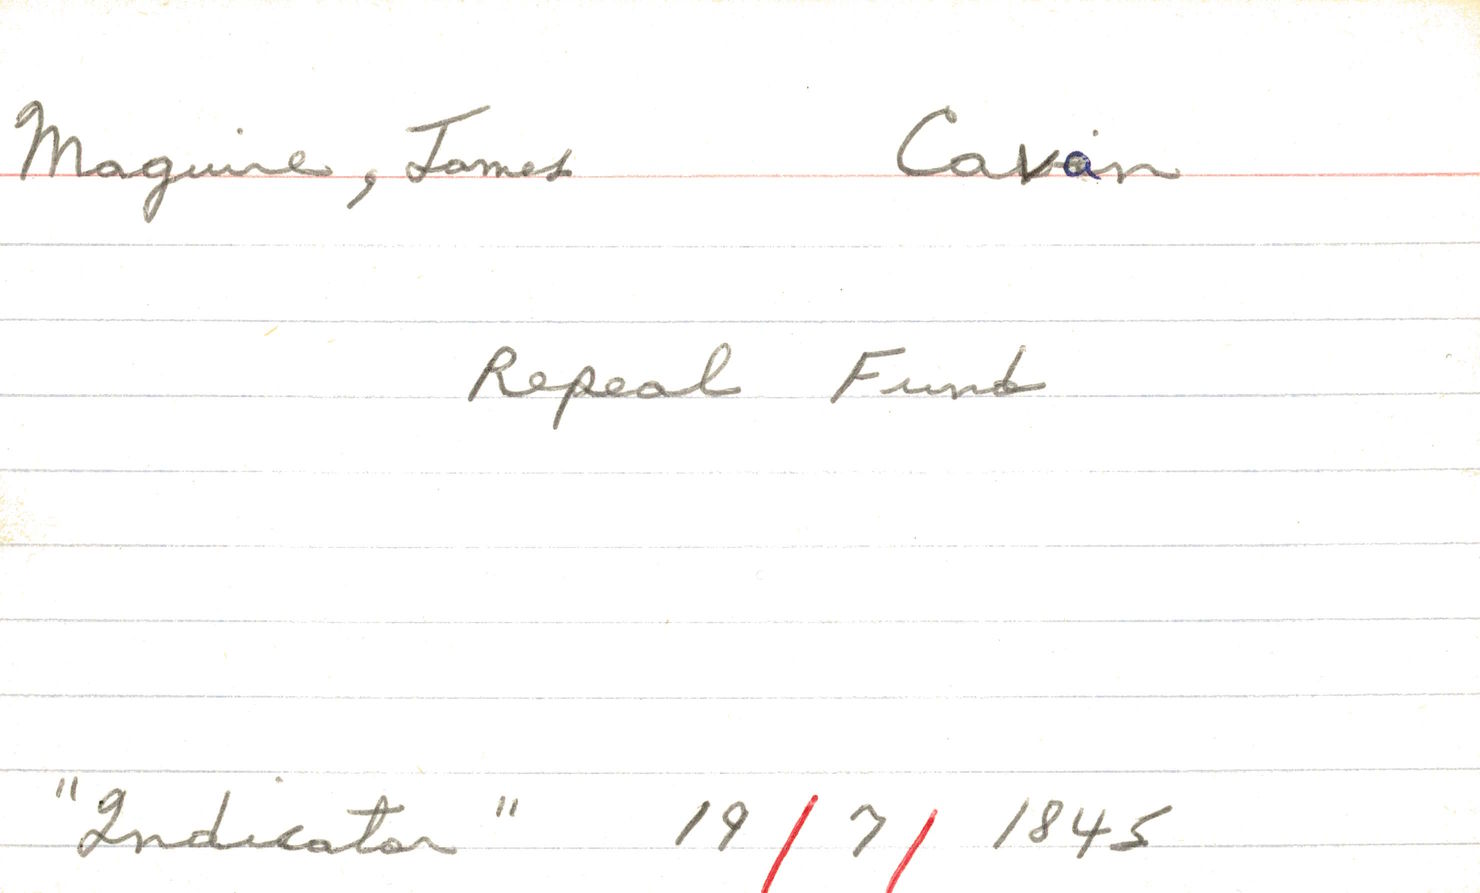 Maguire, James Cavan
Repeal Fund
"Indicator" 19/7/1845